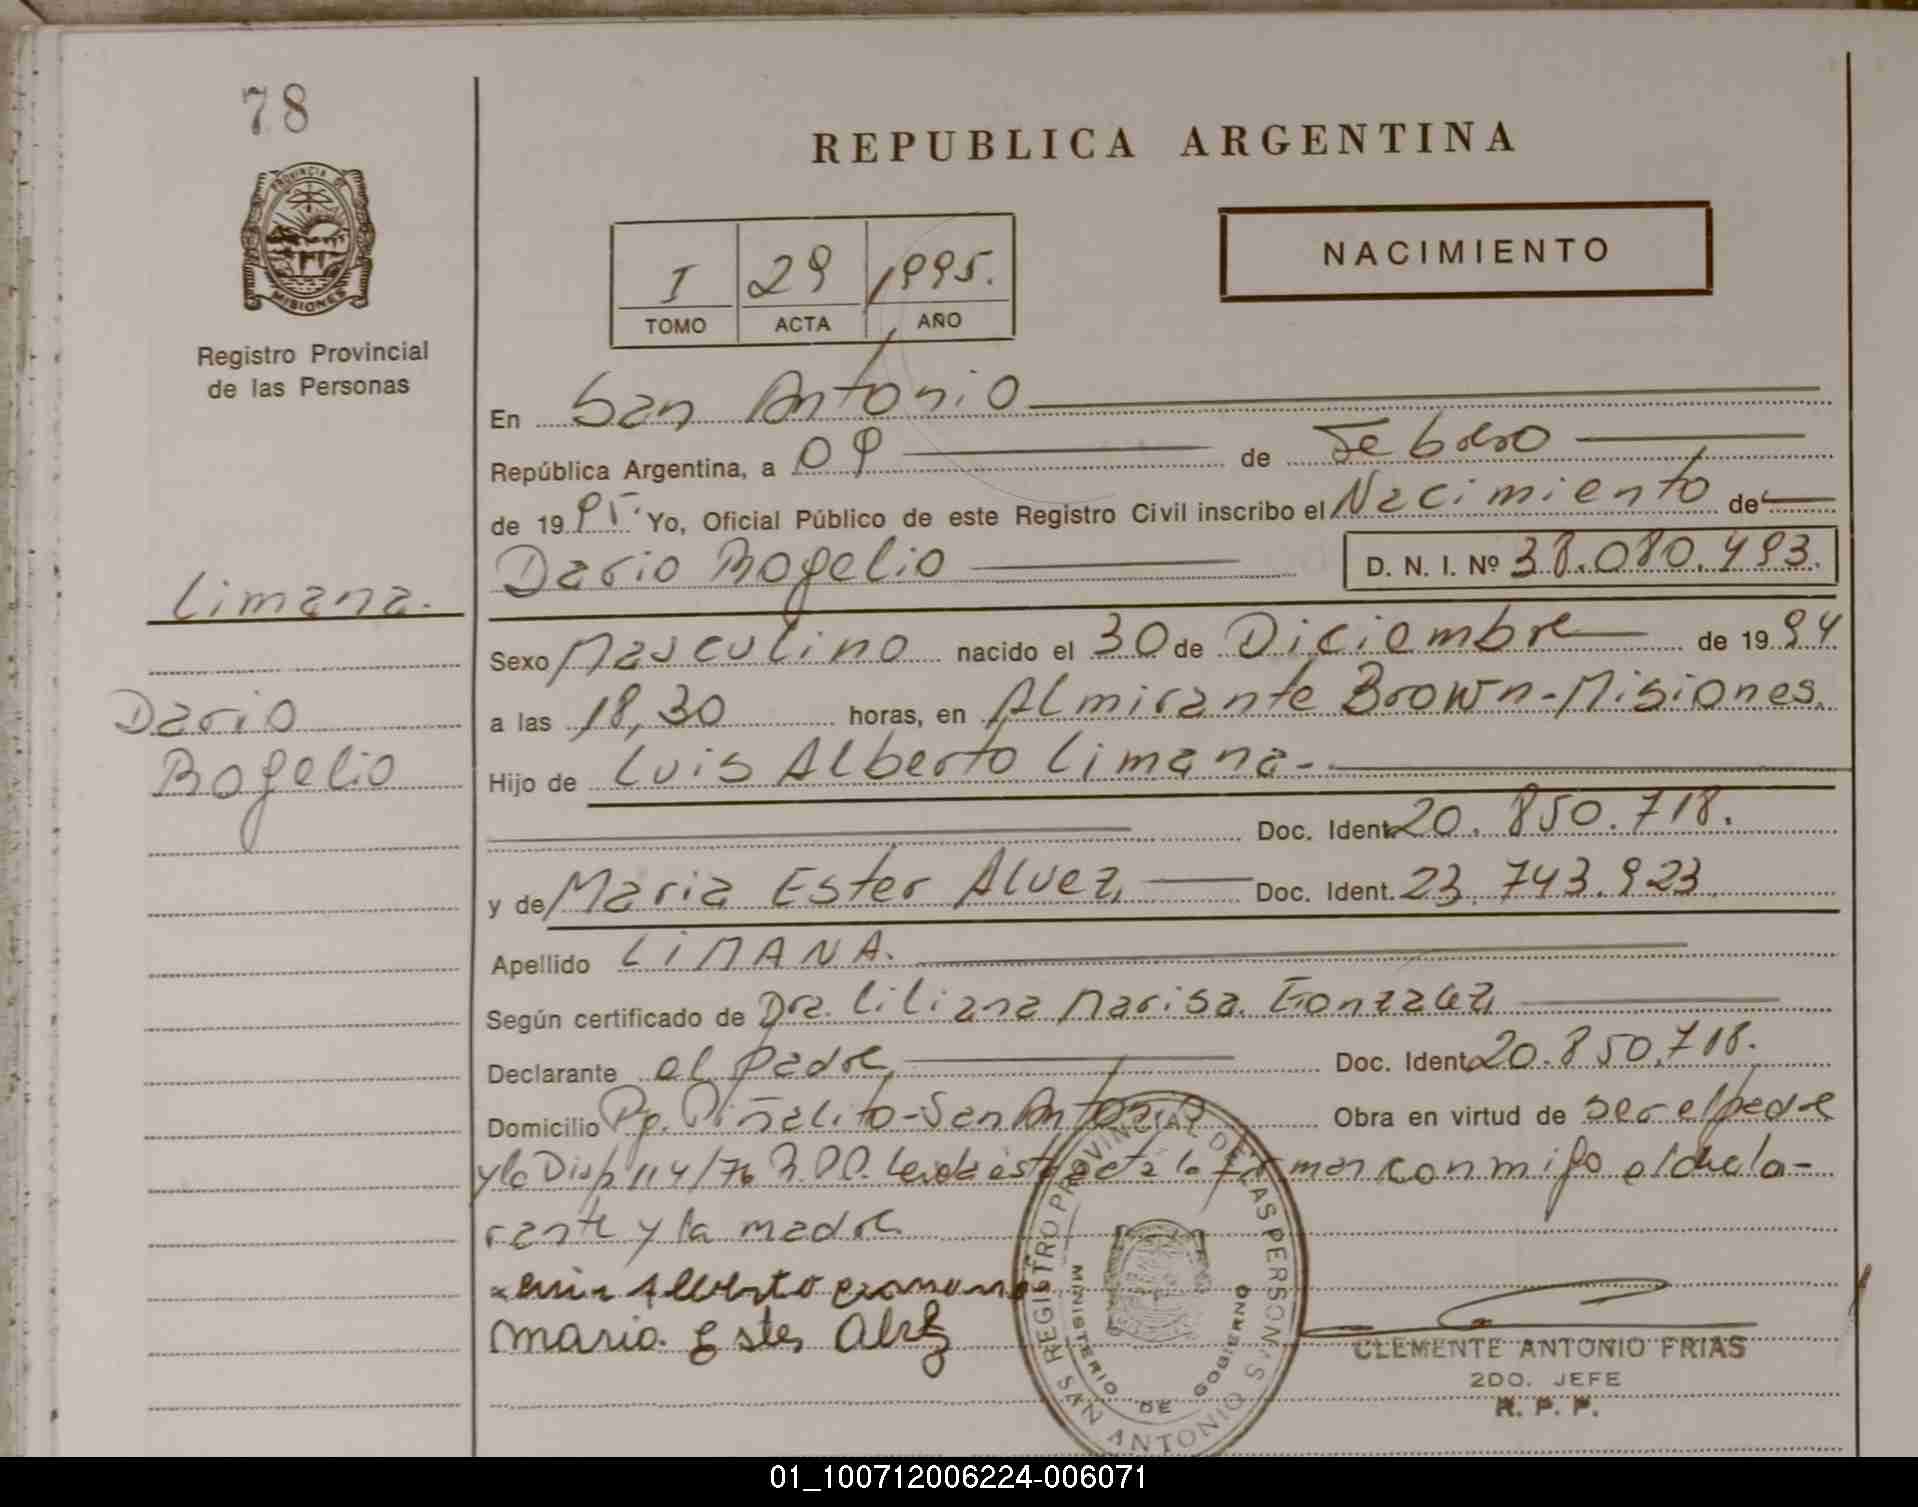 78
REPUBLICA ARGENTINA
PROVINCIA DE
MISIONES
NACIMIENTO
I 29 1995.
TOMO ACTA AÑO
Registro Provincial
de las Personas
En San Antonio
República Argentina, a 09 de Febrero
de 1995. Yo, Oficial Público de este Registro Civil inscribo el Nacimiento de
Dario Rogelio D. N. I. Nº 38.080.493.
Limana.
Sexo Masculino nacido el 30 de Diciembre de 1994
Dario
a las 18,30 horas, en Almirante Brown-Misiones.
Rogelio
Hijo de Luis Alberto Limana-.
Doc. Ident. 20.850.718.
y de Maria Ester Alvez, Doc. Ident. 23.743.923
Apellido LIMANA.
Según certificado de Dra. Liliana Marisa Gonzalez
Declarante el padre Doc. Ident. 20.850.718.
Domicilio Pje. Piñalito-San Antonio Obra en virtud de ser el padre
y la Disp 114/76 R.P.P. Leida esta acta la firman conmigo el decla-
rante y la madre
Luis Alberto
Maria Ester
REGISTRO PROVINCIAL DE LAS PERSONAS
MINISTERIO DE GOBIERNO
SAN ANTONIO
CLEMENTE ANTONIO FRIAS
2DO. JEFE
R. P. P.
01_100712006224-006071